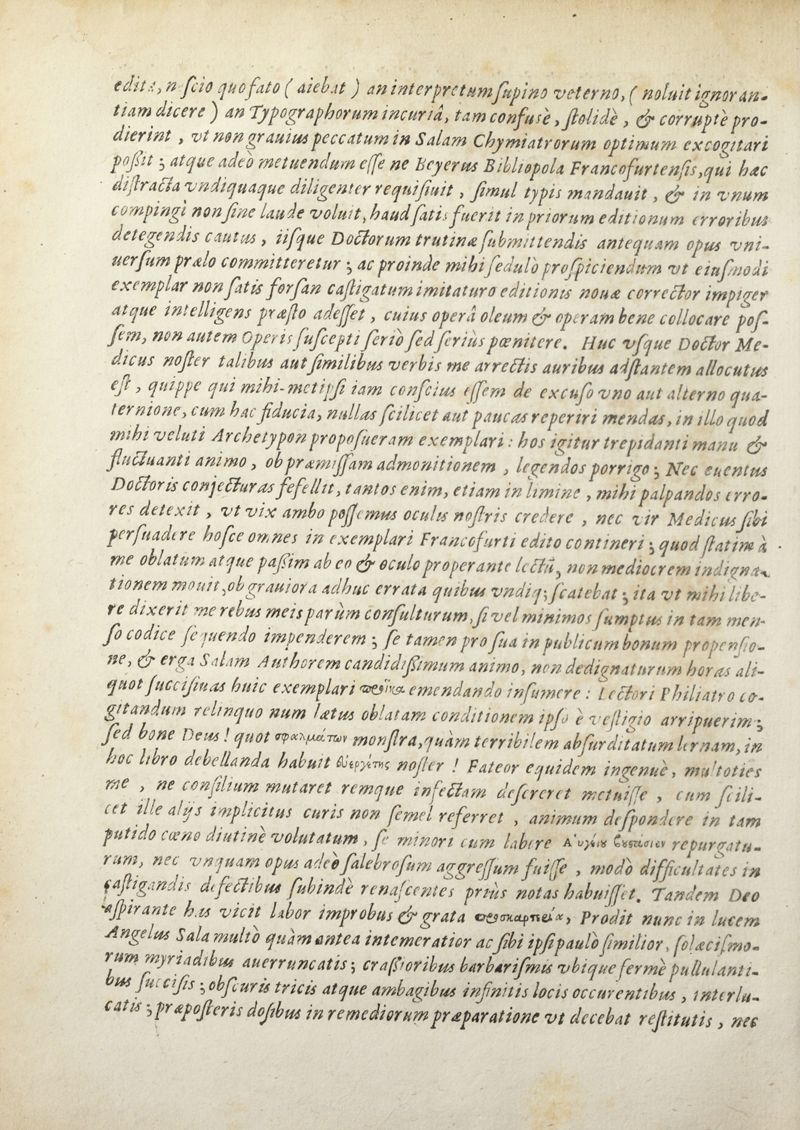 edita, nescio quo fato ( aiebat ) an interpretum supino veterno, ( noluit ignoran-
tiam dicere ) an Typographorum incuriâ, tam confusè, stolidè, & corruptè pro-
dierint, vt non grauius peccatum in Salam Chymiatrorum optimum excogitari
possit ; atque adeò metuendum esse ne Beyerus Bibliopola Francofurtensis, qui hæc
distracta vndiquaque diligenter requisiuit, simul typis mandauit, & in vnum
compingi non sine laude voluit, haud satis fuerit in priorum editionum erroribus
detegendis cautus, iisque Doctorum trutinæ submittendis antequam opus vni-
uersum prælo committeretur ; ac proinde mihi sedulò prospiciendum vt eiusmodi
exemplar non satis forsan castigatum imitaturo editionis nouæ corrector impiger
atque intelligens præsto adesset, cuius operâ oleum & operam bene collocare pos-
sem, non autem Operis suscepti seriò sed seriùs pœnitere. Huc vsque Doctor Me-
dicus noster talibus aut similibus verbis me arrectis auribus adstantem allocutus
est, quippe qui mihi-metipsi iam conscius essem de excuso vno aut alterno qua-
ternione, cum hac fiducia, nullas scilicet aut paucas reperiri mendas, in illo quod
mihi veluti Archetypon proposueram exemplari : hos igitur trepidanti manu &
fluctuanti animo, ob præmissam admonitionem, legendos porrigo ; Nec euentus
Doctoris conjecturas fefellit, tantos enim, etiam in limine, mihi palpandos erro-
res detexit, vt vix ambo possemus oculis nostris credere, nec vir Medicus sibi
persuadere hosce omnes in exemplari Francofurti edito contineri ; quod statim à
me oblatum atque passim ab eo & oculo properante lectū, non mediocrem indigna-
tionem mouit, ob grauiora adhuc errata quibus vndiq; scatebat ; ita vt mihi libe-
re dixerit me rebus meis parùm consulturum, si vel minimos sumptus in tam men-
so codice sequendo impenderem ; se tamen pro sua in publicum bonum propensio-
ne, & erga Salam Authorem candidissimum animo, non dedignaturum horas ali-
quot succisiuas huic exemplari emendando insumere : Lectori Philiatro co-
gitandum relinquo num lætus oblatam conditionem ipso è vestigio arripuerim ;
sed bone Deus ! quot σφαλμάτων monstra, quàm terribilem absurditatum lernam, in
hoc libro debellanda habuit ἐυεργέτης noster ! Fateor equidem ingenuè, multoties
me, ne consilium mutaret remque infectam desereret metuisse, cum scili-
cet ille alijs implicitus curis non semel referret, animum despondere in tam
putido cœno diutinè volutatum, se minori cum labore repurgatu-
rum, nec vnquam opus adeò salebrosum aggressum fuisse, modò difficultates in
castigandis defectibus subindè renascentes priùs notas habuisset. Tandem Deo
aspirante has vicit labor improbus & grata προσκαρτερία, Prodit nunc in lucem
Angelus Sala multò quàm antea intemeratior ac sibi ipsi paulò similior, solæcismo-
rum myriadibus auerruncatis ; crassioribus barbarismis vbique fermè pullulanti-
bus succisis ; obscuris tricis atque ambagibus infinitis locis occurentibus, interlu-
catis ; præposteris dosibus in remediorum præparatione vt decebat restitutis, nec